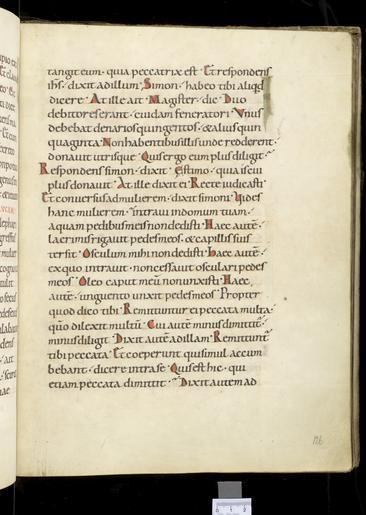 tangit eum · quia peccatrix est · Et respondens
ihs · dixit ad illum · Simon · habeo tibi aliqd
dicere · At ille ait · Magister · dic · Duo
debitores erant · cuidam feneratori · Vnus
debebat denarios quingentos · & alius quin
quaginta · Non habentibus illis unde redderent ·
donauit utrisque · Quis ergo eum plus diligit ·
Respondens simon · dixit · Estimo · quia is cui
plus donauit · At ille dixit ei · Recte iudicasti ·
Et conuersus ad mulierem · dixit simoni · Uides
hanc mulierem · intraui in domum tuam ·
aquam pedibus meis non dedisti · Haec autē ·
lacrimis rigauit pedes meos · & capillis suis
tersit · Osculum mihi non dedisti · haec autē ·
ex quo intrauit · non cessauit osculari pedes
meos · Oleo caput meū non unxisti · Haec
autē · unguento unxit pedes meos · Propter
quod dico tibi · Remittuntur ei peccata multa ·
quō dilexit multū · Cui autē minus dimittit ·
minus diligit · Dixit autē ad illam · Remittunt
tibi peccata · Et coeperunt qui simul accum
bebant · dicere intra se · Quis est hic · qui
etiam peccata dimittit · Dixit autem ad
126